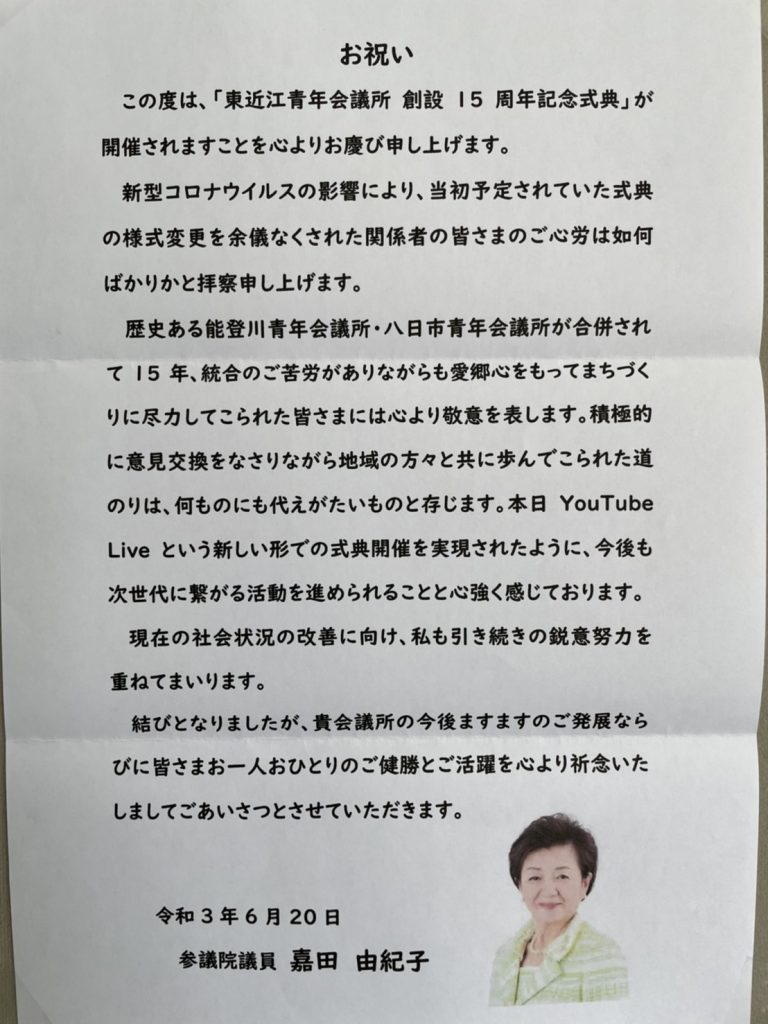 お祝い
この度は、「東近江青年会議所 創設 15 周年記念式典」が
開催されますことを心よりお慶び申し上げます。
新型コロナウイルスの影響により、当初予定されていた式典
の様式変更を余儀なくされた関係者の皆さまのご心労は如何
ばかりかと拝察申し上げます。
歴史ある能登川青年会議所・八日市青年会議所が合併され
て 15 年、統合のご苦労がありながらも愛郷心をもってまちづく
りに尽力してこられた皆さまには心より敬意を表します。積極的
に意見交換をなさりながら地域の方々と共に歩んでこられた道
のりは、何ものにも代えがたいものと存じます。本日 YouTube
Live という新しい形での式典開催を実現されたように、今後も
次世代に繋がる活動を進められることと心強く感じております。
現在の社会状況の改善に向け、私も引き続きの鋭意努力を
重ねてまいります。
結びとなりましたが、貴会議所の今後ますますのご発展なら
びに皆さまお一人おひとりのご健勝とご活躍を心より祈念いた
しましてごあいさつとさせていただきます。
令和3年6月20日
参議院議員 嘉田 由紀子